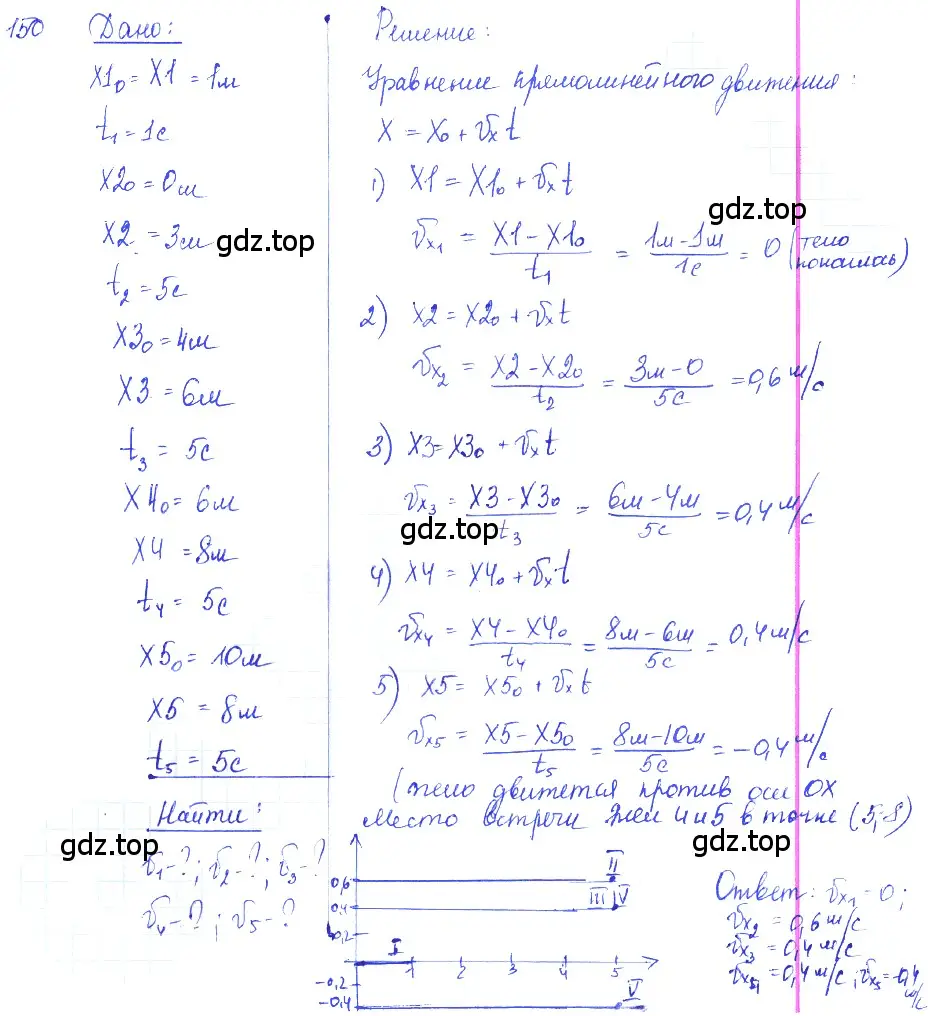 150 Дано:
X1₀ = X1 = 1м
t₁ = 1с
X2₀ = 0м
X2 = 3м
t₂ = 5с
X3₀ = 4м
X3 = 6м
t₃ = 5с
X4₀ = 6м
X4 = 8м
t₄ = 5с
X5₀ = 10м
X5 = 8м
t₅ = 5с
Найти:
v₁-?; v₂-?; v₃-?
v₄-?; v₅-?
Решение:
Уравнение прямолинейного движения:
X = X₀ + vₓt
1) X1 = X1₀ + vₓt
vₓ₁ = (X1 - X1₀)/t₁ = (1м - 1м)/1с = 0 (тело покоилась)
2) X2 = X2₀ + vₓt
vₓ₂ = (X2 - X2₀)/t₂ = (3м - 0)/5с = 0,6 м/с
3) X3 = X3₀ + vₓt
vₓ₃ = (X3 - X3₀)/t₃ = (6м - 4м)/5с = 0,4 м/с
4) X4 = X4₀ + vₓt
vₓ₄ = (X4 - X4₀)/t₄ = (8м - 6м)/5с = 0,4 м/с
5) X5 = X5₀ + vₓt
vₓ₅ = (X5 - X5₀)/t₅ = (8м - 10м)/5с = -0,4 м/с
(тело движется против оси OX
Место встречи тел 4 и 5 в точке (5;8)
0,6 II
0,4 III IV
0,2
I
1 2 3 4 5
-0,2
-0,4 V
Ответ: vₓ₁ = 0;
vₓ₂ = 0,6 м/с
vₓ₃ = 0,4 м/с
vₓ₄ = 0,4 м/с; vₓ₅ = -0,4 м/с
gdz.top
gdz.top
gdz.top
gdz.top
gdz.top